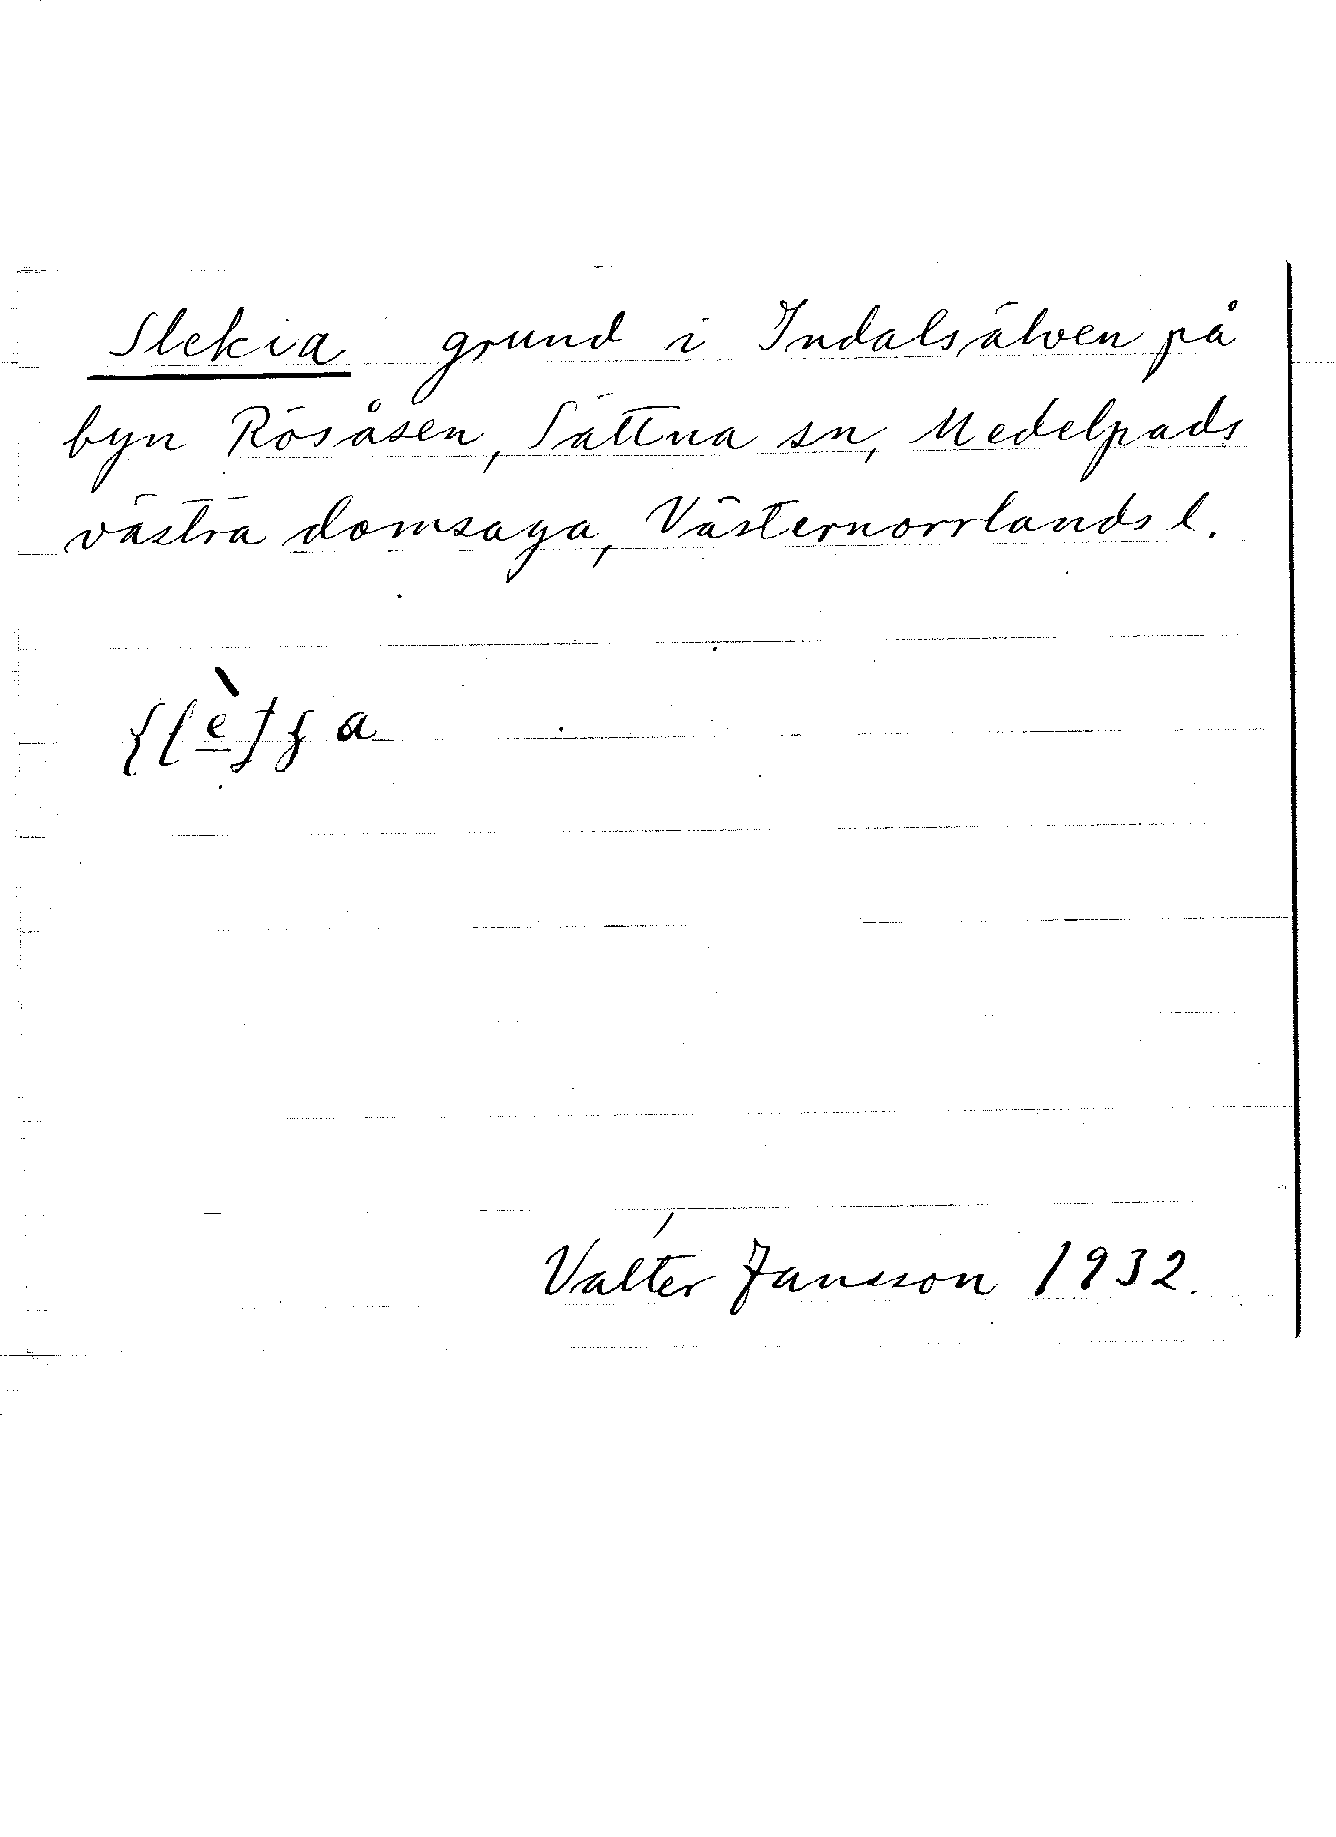 Slekia grund i Indalsälven på
byn Rösåsen, Sättna sn, Medelpads
västra domsaga, Västernorrlands l.
Valter Jansson 1932.